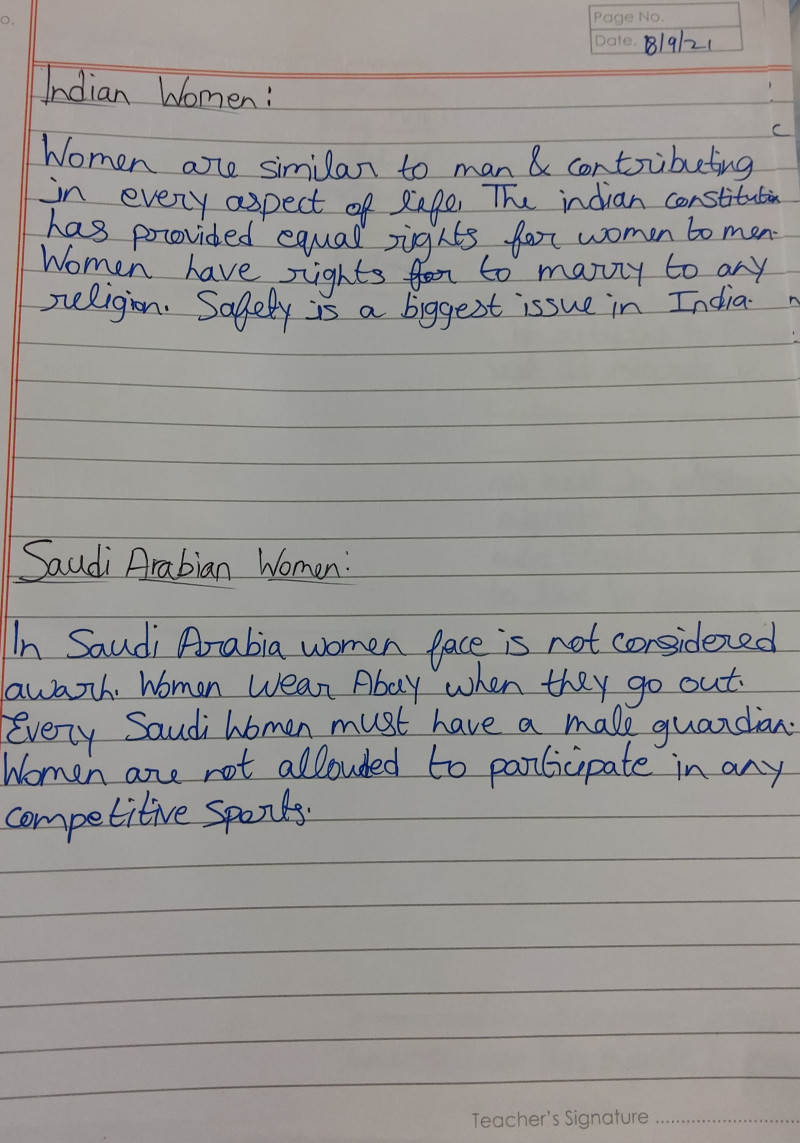 Page No.
Date. 8/9/21
Indian Women:
Women are similar to man & contributing
in every aspect of life. The indian constitution
has provided equal rights for women to men.
Women have rights for to marry to any
religion. Safety is a biggest issue in India.
Saudi Arabian Women:
In Saudi Arabia women face is not considered
awarh. Women Wear Abay when they go out.
Every Saudi Women must have a male guardian.
Women are not allouded to participate in any
competitive Sports.
Teacher's Signature